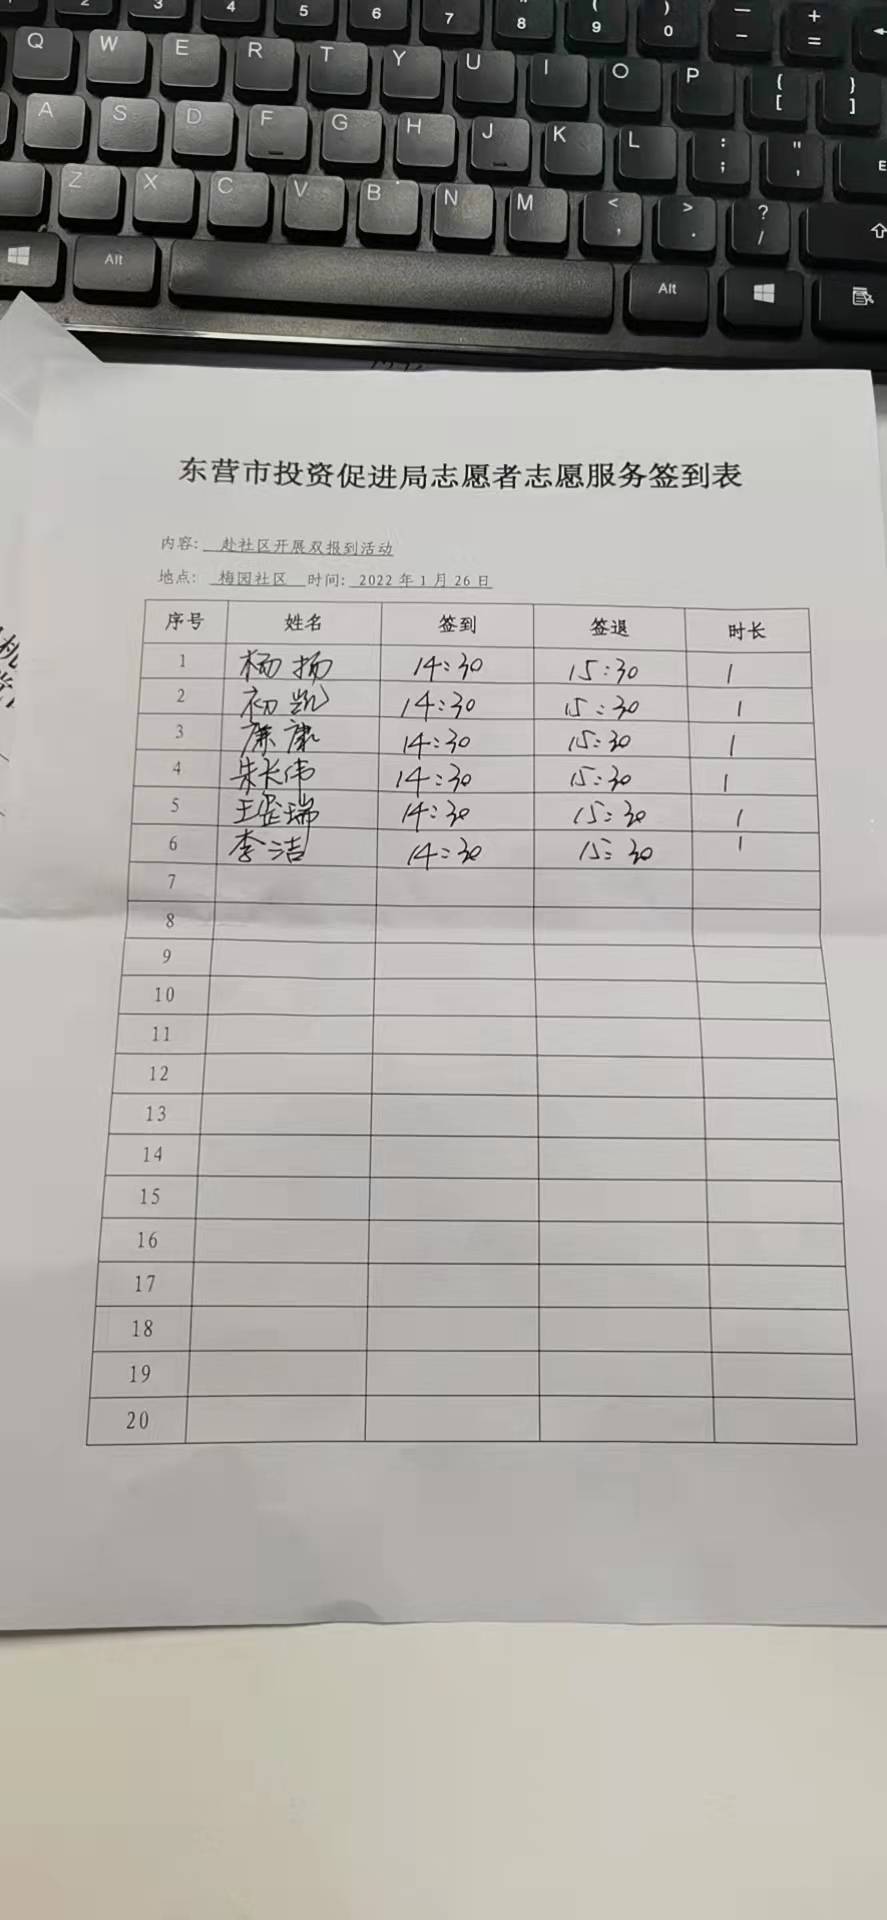 2 3 4 5 6 7 8 ( 9 ) 0 — - + =
Q W E R T Y U I O P { [ } ]
A S D F G H J K L : ; " ' E
Z X C V B N M < , > . ? /
Alt Alt
东营市投资促进局志愿者志愿服务签到表
内容: 赴社区开展双报到活动
地点: 梅园社区 时间: 2022年1月26日
序号 姓名 签到 签退 时长
1 杨扬 14:30 15:30 1
2 初凯 14:30 15:30 1
3 康 14:30 15:30 1
4 朱长伟 14:30 15:30 1
5 王瑞 14:30 15:30 1
6 李洁 14:30 15:30 1
7
8
9
10
11
12
13
14
15
16
17
18
19
20